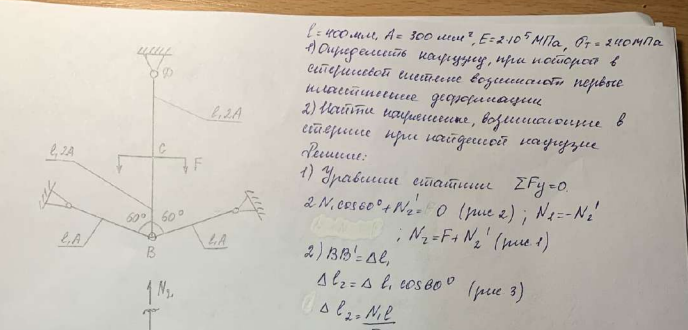 l=400мм, A=300мм², E=2·10⁵МПа, σт=240МПа
1) Определить нагрузку, при которой в
стержневой системе возникают первые
пластические деформации
2) Найти напряжение, возникающие в
стержне при найденной нагрузке
Решение:
1) Уравнение статики ΣFy=0.
2N₁cos60°+N₂'=0 (рис 2); N₁=-N₂'
; N₂=F+N₂' (рис 1)
2) BB'=Δl₁
Δl₂=Δl₁cos60° (рис 3)
Δl₂=N₁l
D
l,2A
C
F
l,2A
60° 60°
l,A
B
l,A
N₂